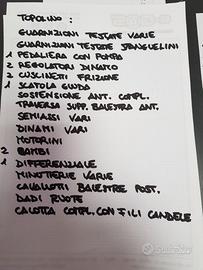 TOPOLINO:
GUARNIZIONI TESTATE VARIE
GUARNIZIONI TESTATE SIANGUELINI
1 PEDALIERA CON POMPA
2 REGOLATORI DINAMO
2 CUSCINETTI FRIZIONE
1 SCATOLA GUIDA
SOSPENSIONE ANT. COMPL.
TRAVERSA SUPP. BALESTRA ANT.
SEMIASSI VARI
DINAMI VARI
MOTORINI
2 BAMBI
1 DIFFERENZIALE
MINUTERIE VARIE
CAVALLOTTI BALESTRE POST.
DADI RUOTE
CALOTTA COMPL. CON FILI CANDELE
Subito